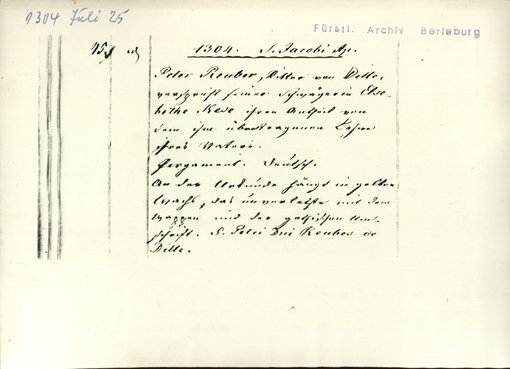 1304 Juli 25
Fürstl. Archiv Berleburg
45
1304. S. Jacobi Ap.
Peter Reuber, Ritter von Ditte,
verspricht seiner Schwägerin Else-
bethe Kese ihren Antheil von
dem ihm übertragenen Lehne
ihres Vaters.
Pergament. Deutsch.
An der Urkunde hängt in gelbem
Wachs, das unverletzte mit dem
Wappen und der gothischen Um-
schrift. S. Petri Dni Reuber de
Ditte.